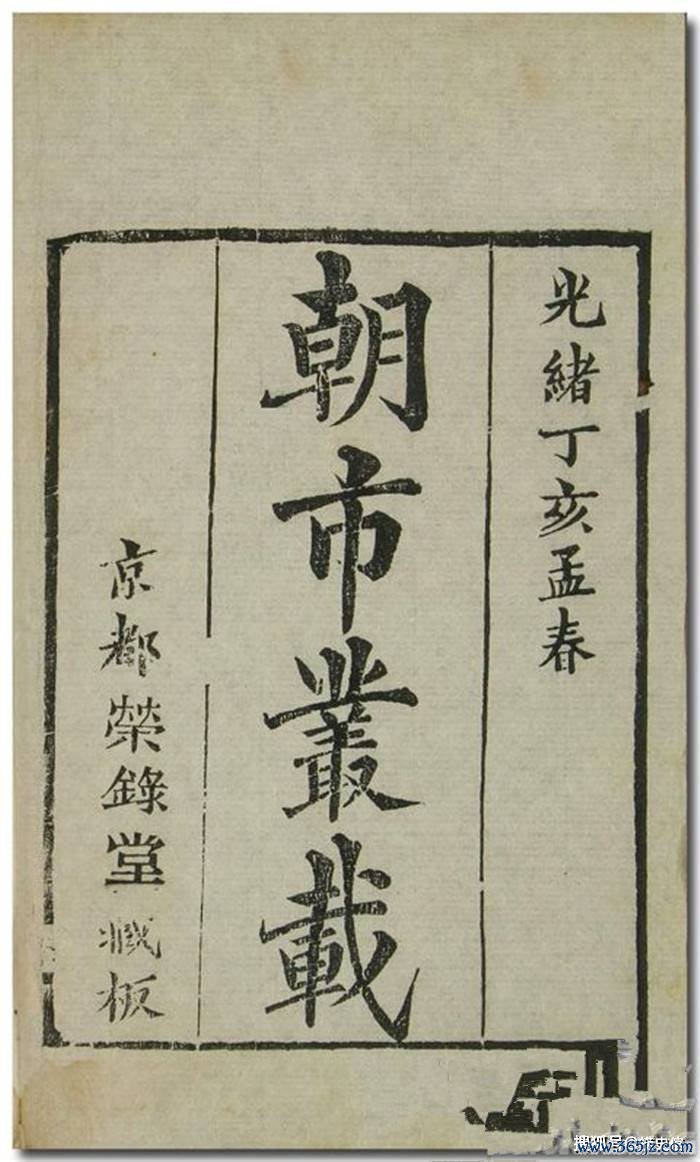 光緒丁亥孟春
朝市叢載
京都榮錄堂藏板
www.365jz.com